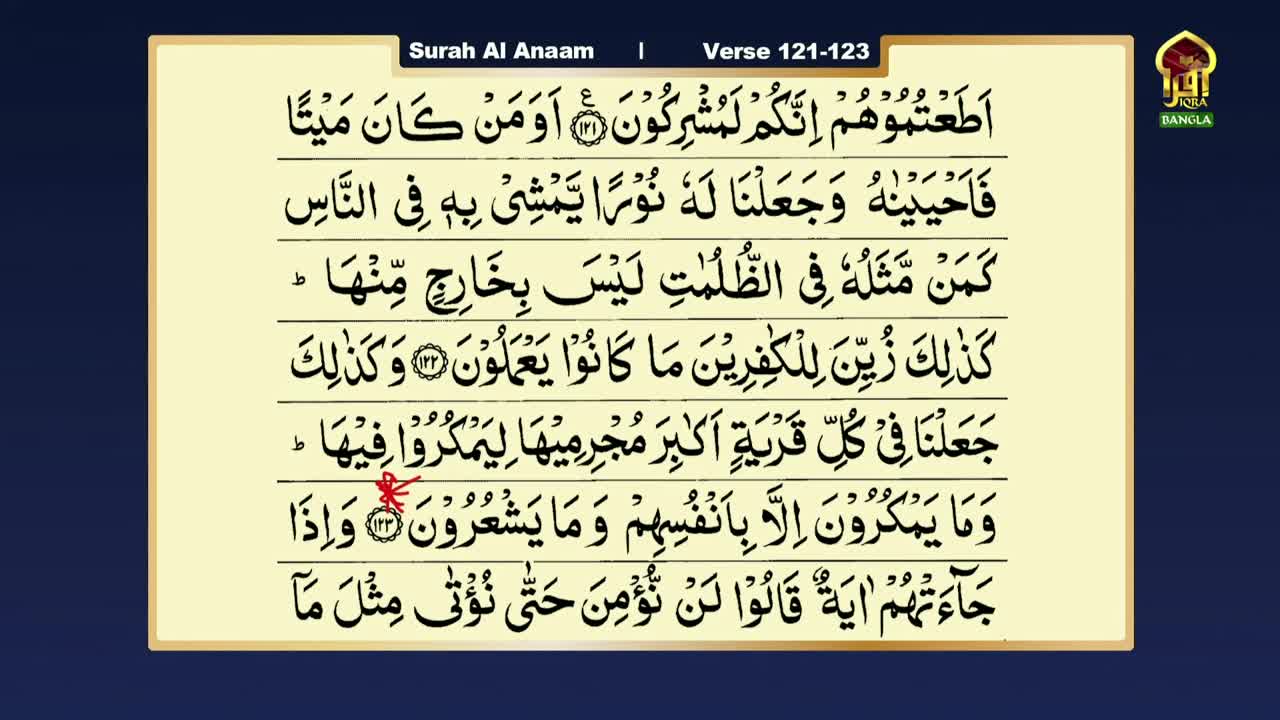 Surah Al Anaam | Verse 121-123
اقرأ
IQRA
BANGLA
اَطَعْتُمُوْهُمْ اِنَّكُمْ لَمُشْرِكُوْنَ ۧ﴿۱۲۱﴾ اَوَمَنْ كَانَ مَيْتًا
فَاَحْيَيْنٰهُ وَجَعَلْنَا لَهٗ نُوْرًا يَّمْشِىْ بِهٖ فِى النَّاسِ
كَمَنْ مَّثَلُهٗ فِى الظُّلُمٰتِ لَيْسَ بِخَارِجٍ مِّنْهَا ؕ
كَذٰلِكَ زُيِّنَ لِلْكٰفِرِيْنَ مَا كَانُوْا يَعْمَلُوْنَ ﴿۱۲۲﴾ وَكَذٰلِكَ
جَعَلْنَا فِىْ كُلِّ قَرْيَةٍ اَكٰبِرَ مُجْرِمِيْهَا لِيَمْكُرُوْا فِيْهَا ؕ
وَمَا يَمْكُرُوْنَ اِلَّا بِاَنْفُسِهِمْ وَمَا يَشْعُرُوْنَ ﴿۱۲۳﴾ وَاِذَا
جَآءَتْهُمْ اٰيَةٌ قَالُوْا لَنْ نُّؤْمِنَ حَتّٰى نُؤْتٰى مِثْلَ مَاۤ